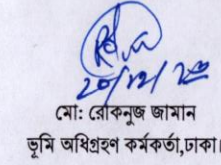 ২০/১২/২০
মো: রোকনুজ জামান
ভূমি অধিগ্রহণ কর্মকর্তা,ঢাকা।